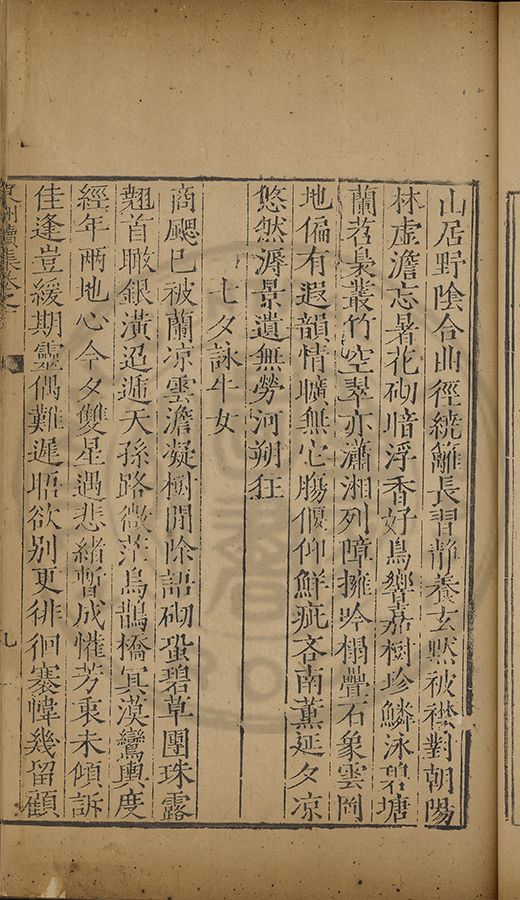 山居野陰合曲徑繞籬長習静養玄黙被襟對朝陽
林虛澹忘暑花砌暗浮香好鳥響嘉樹珍鱗泳碧塘
蘭茗裊叢竹空翠亦瀟湘列障擁吟榻疊石象雲岡
地偏有遐韻情曠無它膓偃仰鮮疵吝南薰延夕凉
悠然溽景遺無勞河朔狂
七夕詠牛女
商飈已被蘭凉雲澹凝樹閒除語砌蛩碧草團珠露
翹首瞰銀潢迢遞天孫路微茫烏鵲橋冥漠鸞輿度
經年兩地心今夕雙星遇悲緒暫成懽芳衷未傾訴
佳逢豈緩期靈偶難遲晤欲别更徘徊褰幃幾留顧
續集卷之
九